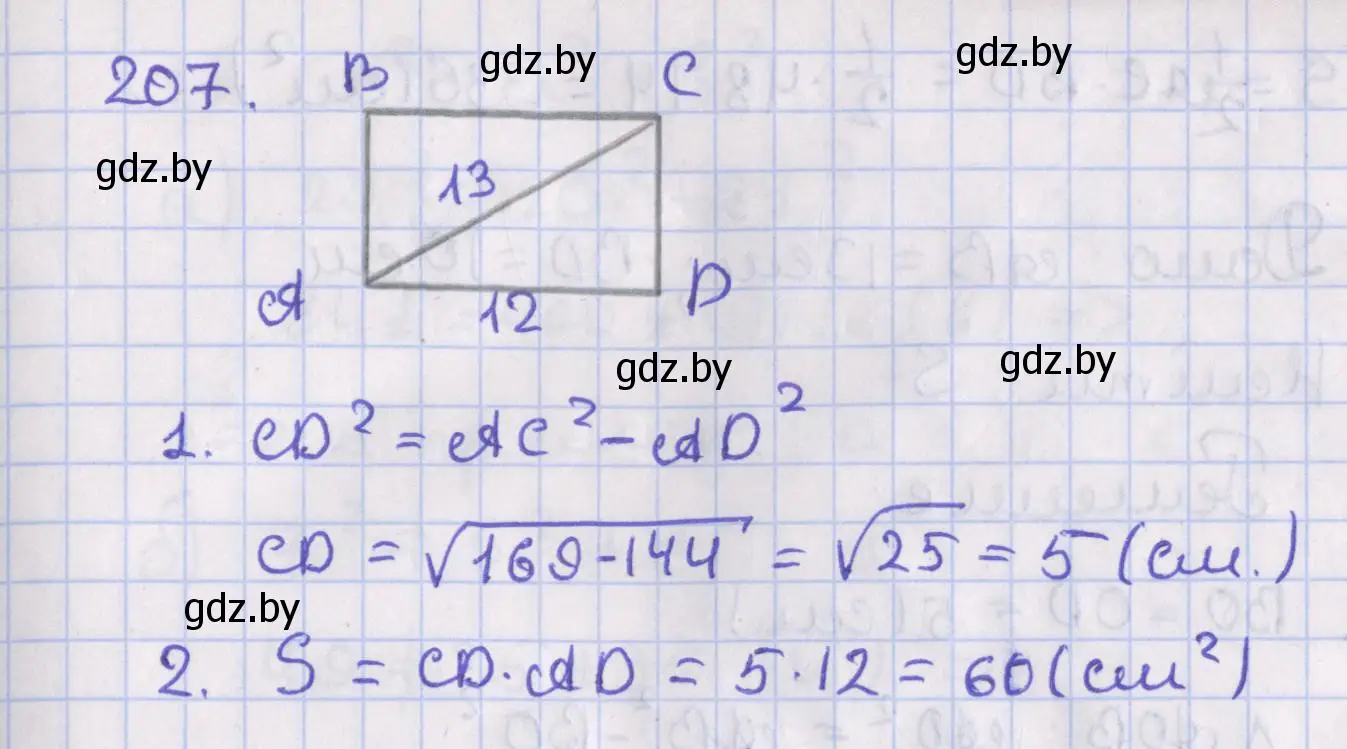 207.
B gdz.by C gdz.by
gdz.by 13
A 12 D
gdz.by gdz.by
1. CD² = AC² - AD²
CD = √169-144 = √25 = 5 (см.)
gdz.by
2. S = CD·AD = 5·12 = 60 (см²)